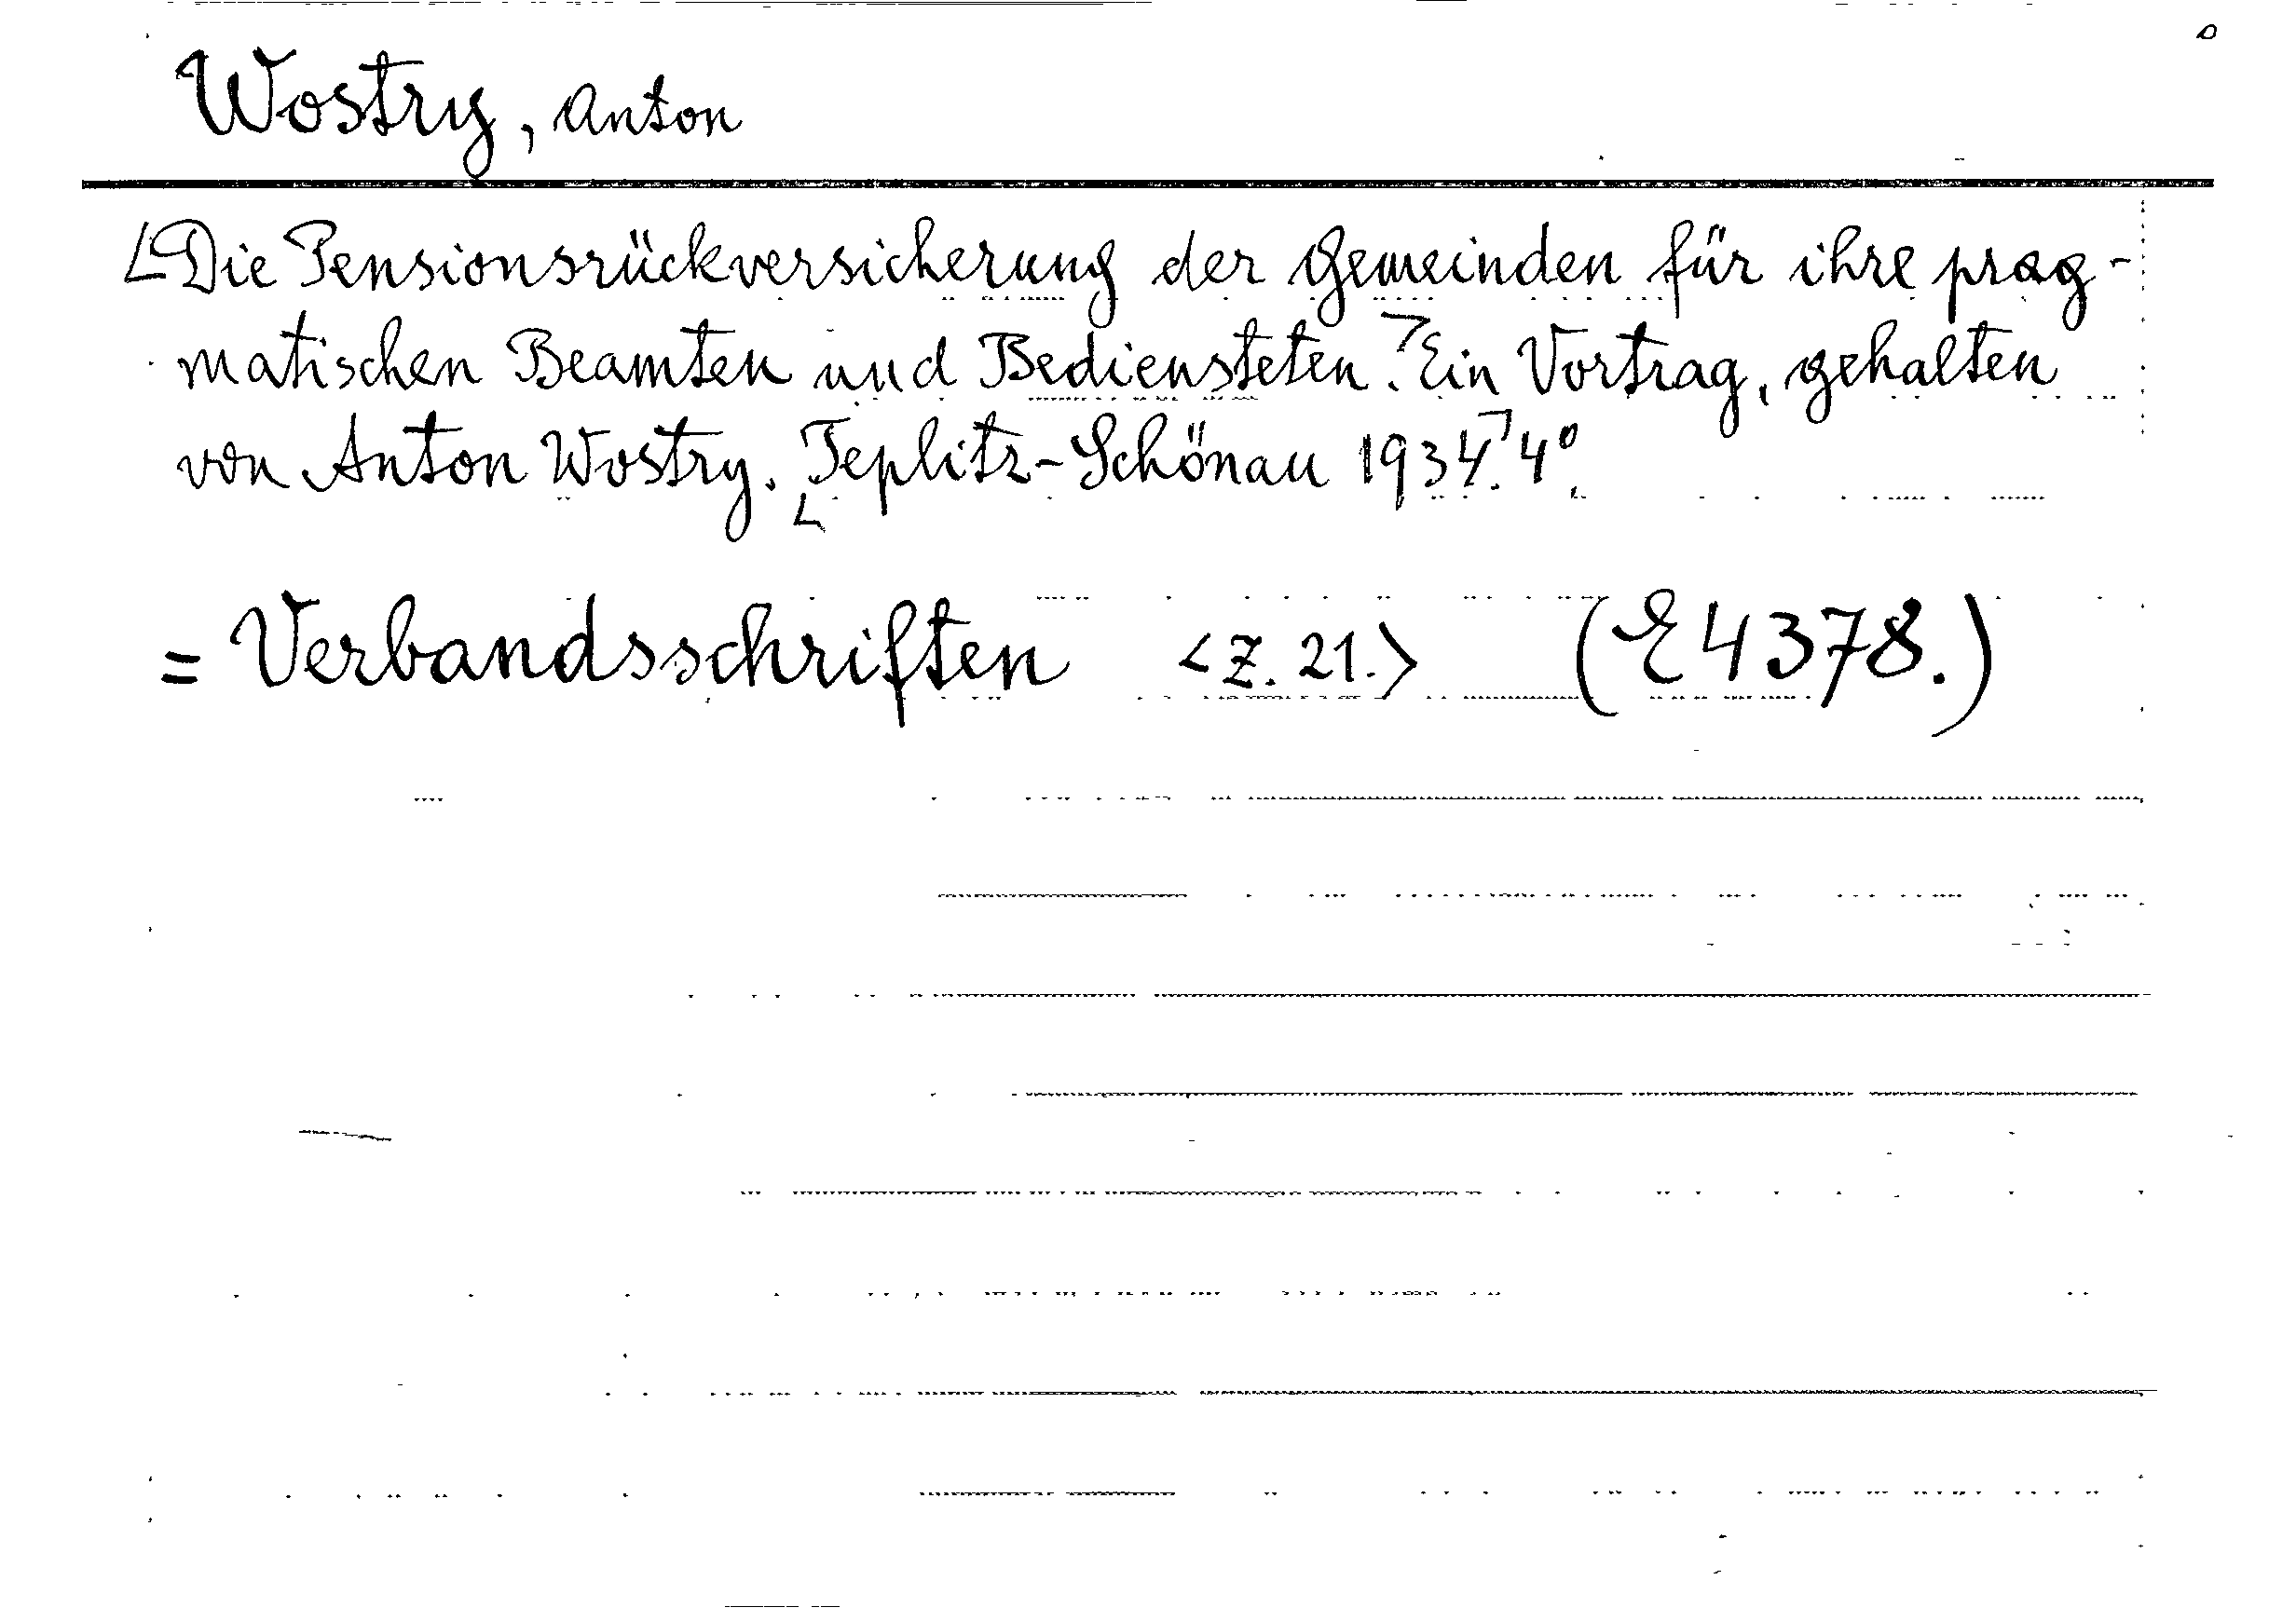 Wostry, Anton
⌊Die Pensionsrückversicherung der Gemeinden für ihre prag-
matischen Beamten und Bediensteten.⌉ Ein Vortrag, gehalten
von Anton Wostry. ⌊Teplitz-Schönau 1934.⌉ 4°.
= Verbandsschriften <Z. 21.> (E 4378.)